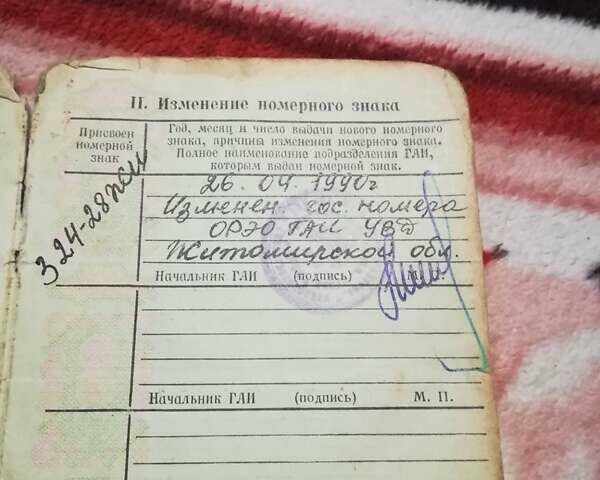 II. Изменение номерного знака
Присвоен
номерной
знак
Год, месяц и число выдачи нового номерного
знака, причина изменения номерного знака.
Полное наименование подразделения ГАИ,
которым выдан номерной знак.
324-28жи
26. 04. 1990г
Изменен. гос. номера
ОРЭО ГАИ УВД
Житомирской обл.
Начальник ГАИ (подпись) М. П.
Начальник ГАИ (подпись) М. П.